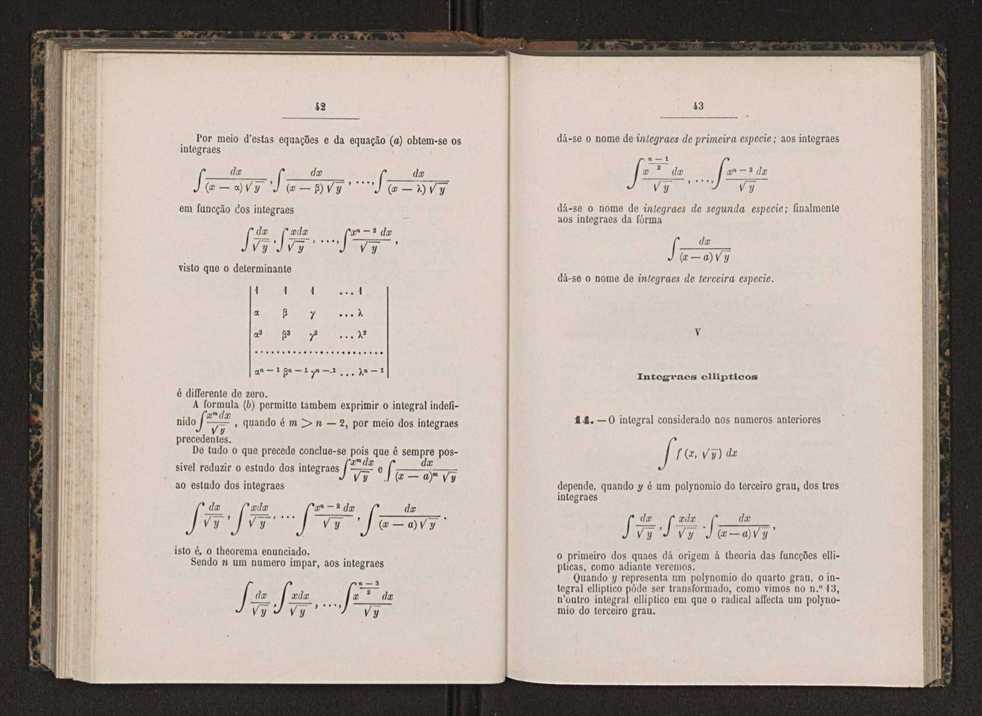 42
Por meio d'estas equações e da equação (a) obtem-se os
integraes
∫ dx / (x — α) √y , ∫ dx / (x — β) √y , ..., ∫ dx / (x — λ) √y
em funcção dos integraes
∫ dx / √y , ∫ xdx / √y , ..., ∫ xⁿ⁻² dx / √y ,
visto que o determinante
1 1 1 ... 1
α β γ ... λ
α² β² γ² ... λ²
........................
αⁿ⁻¹ βⁿ⁻¹ γⁿ⁻¹ ... λⁿ⁻¹
é differente de zero.
A formula (b) permitte tambem exprimir o integral indefi-
nido ∫ xᵐdx / √y , quando é m > n — 2, por meio dos integraes
precedentes.
De tudo o que precede conclue-se pois que é sempre pos-
sivel reduzir o estudo dos integraes ∫ xᵐdx / √y e ∫ dx / (x — a)ᵐ √y
ao estudo dos integraes
∫ dx / √y , ∫ xdx / √y , ... ∫ xⁿ⁻² dx / √y , ∫ dx / (x — a) √y .
isto é, o theorema enunciado.
Sendo n um numero impar, aos integraes
∫ dx / √y , ∫ xdx / √y , ..., ∫ x^((n — 3)/2) dx / √y
43
dá-se o nome de integraes de primeira especie; aos integraes
∫ x^((n — 1)/2) dx / √y , ..., ∫ xⁿ⁻² dx / √y
dá-se o nome de integraes de segunda especie; finalmente
aos integraes da fórma
∫ dx / (x — a) √y
dá-se o nome de integraes de terceira especie.
V
Integraes ellipticos
14. — O integral considerado nos numeros anteriores
∫ f (x, √y) dx
depende, quando y é um polynomio do terceiro grau, dos tres
integraes
∫ dx / √y , ∫ xdx / √y . ∫ dx / (x — a) √y ,
o primeiro dos quaes dá origem á theoria das funcções elli-
pticas, como adiante veremos.
Quando y representa um polynomio do quarto grau, o in-
tegral elliptico póde ser transformado, como vimos no n.º 13,
n'outro integral elliptico em que o radical affecta um polyno-
mio do terceiro grau.